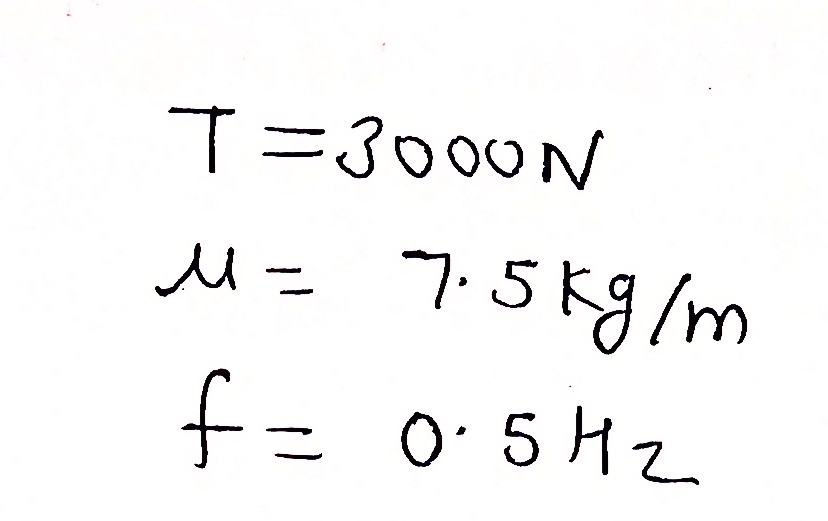 T = 3000N
μ = 7.5 kg/m
f = 0.5 Hz